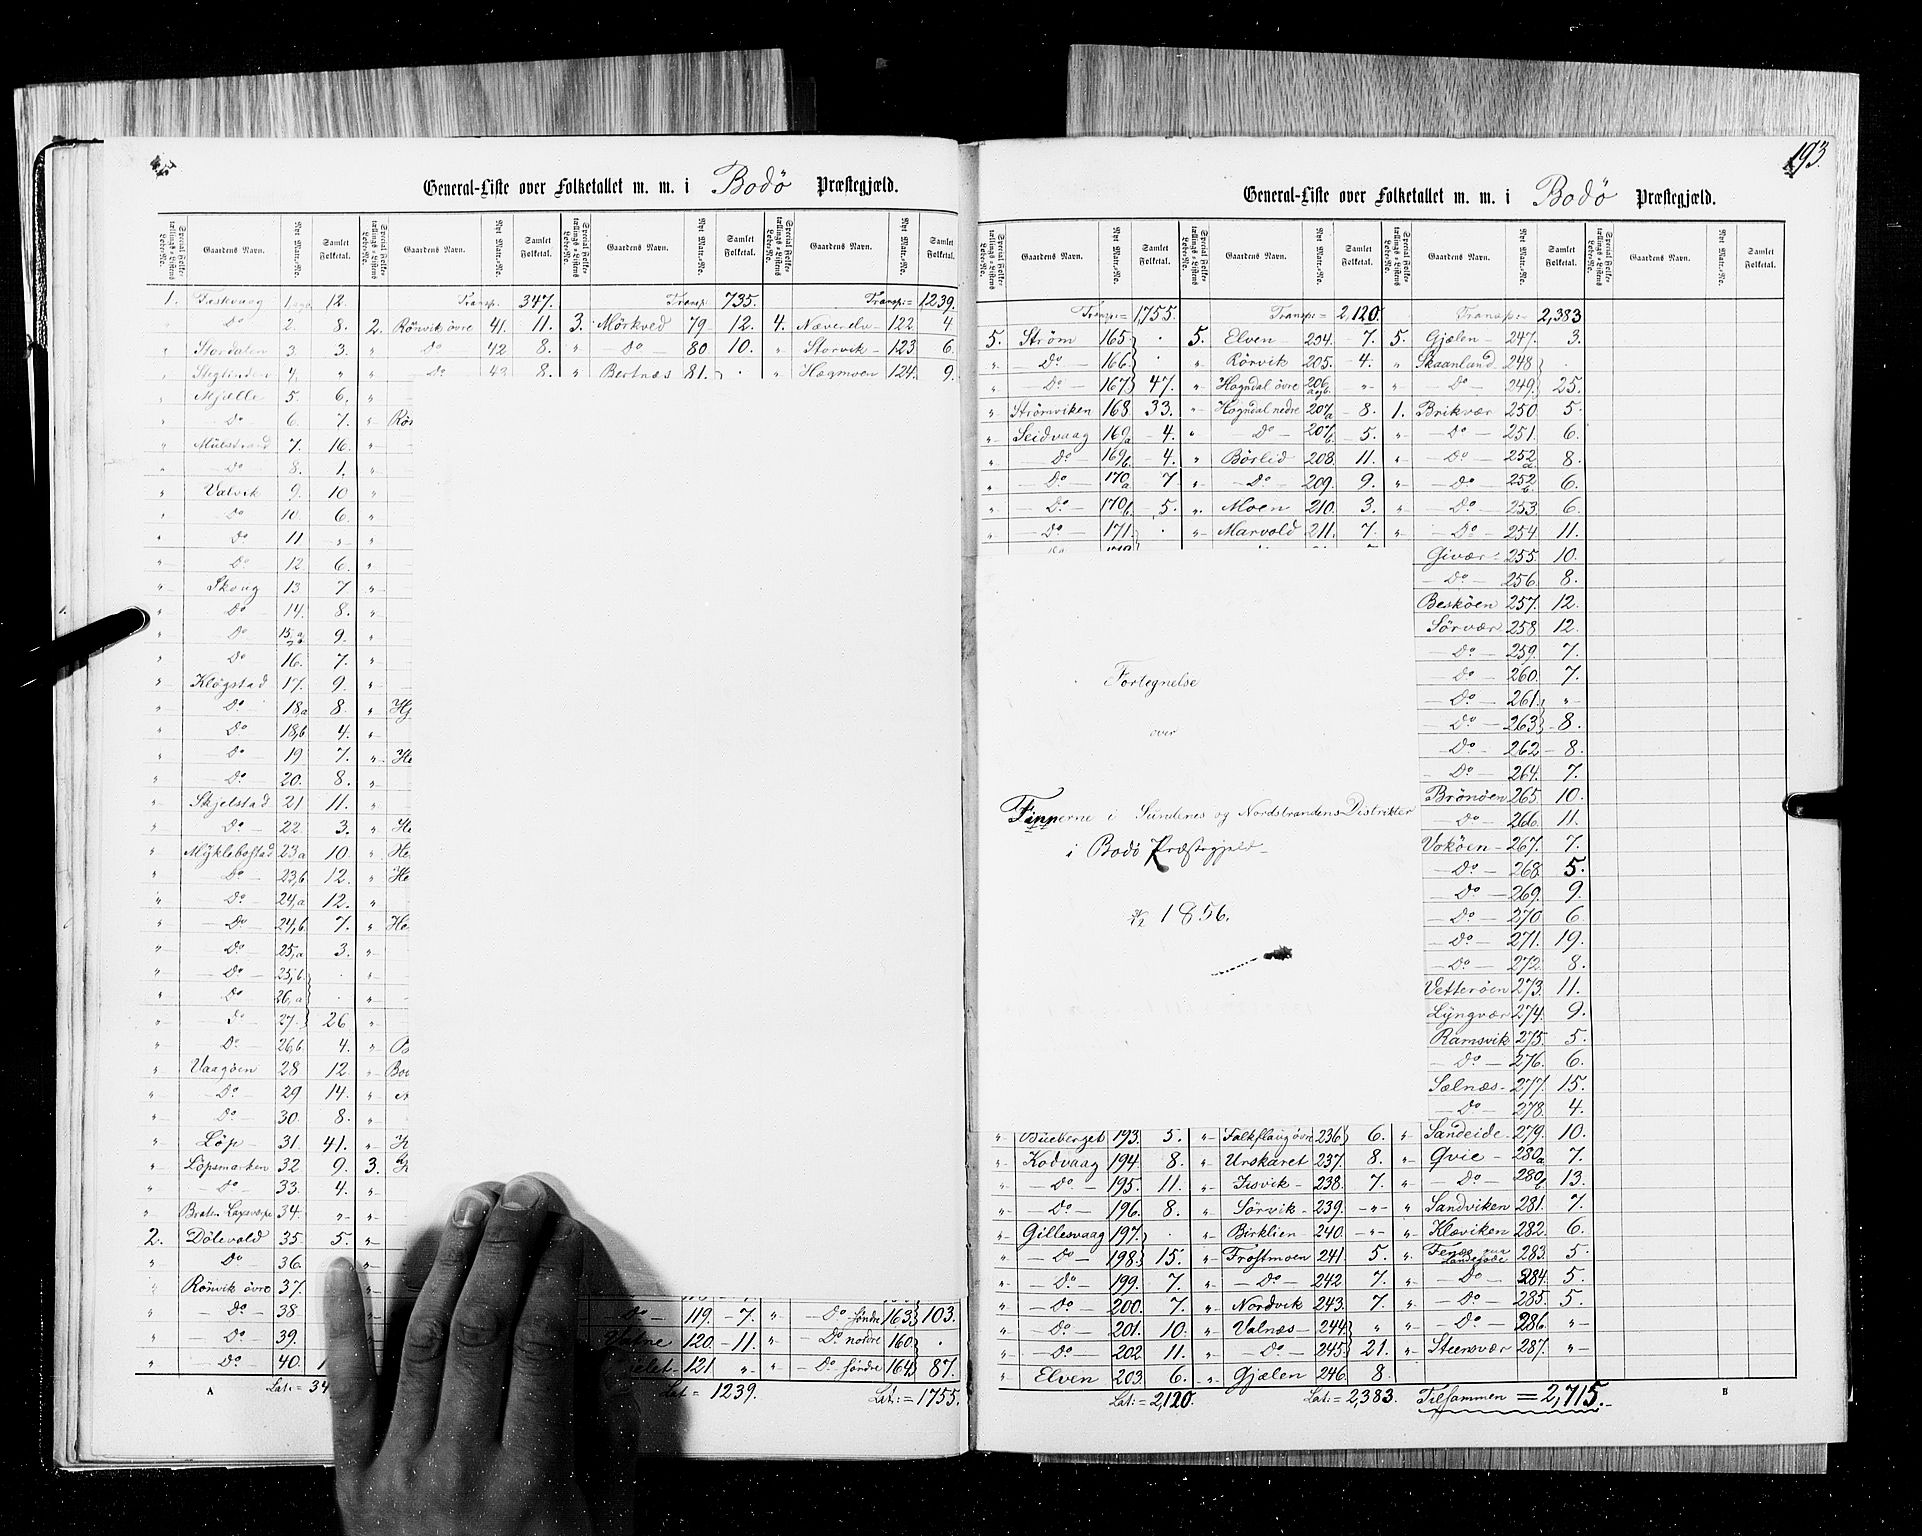 193.
General-Liste over Folketallet m. m. i Bodö Præstegjæld.
Special Folketællings-Listens Løbe-No. Gaardens Navn. Nyt Matr.-No. Samlet Folketal. Special Folketællings-Listens Løbe-No. Gaardens Navn. Nyt Matr.-No. Samlet Folketal. Special Folketællings-Listens Løbe-No. Gaardens Navn. Nyt Matr.-No. Samlet Folketal. Special Folketællings-Listens Løbe-No. Gaardens Navn. Nyt Matr.-No. Samlet Folketal.
1. 12. Transp: 347. Transp: 735. Transp:= 1239.
" Do 2. 8. 2. Rönvik övre 41. 11. 3. Mörkved 79. 12. 4. Næverelv 122. 4
" Stordalen 3. 3. " Do 42 8. " Do 80 10. " Storvik 123 6.
" 4. " " Do 43 8. " Bertnæs 81. . " Hægmoen 124. 9.
" Mjelle 5. 6.
" Do 6. 7. "
" Mulstrand 7. 16. "
" Do 8. 1. "
" Valvik 9. 10 "
" Do 10 6. "
" Do 11 " "
" Do 12 6. "
" Skoug 13 7 "
" Do 14. 8. "
" Do 15 9. "
" Do 16. 7. "
" Klögstad 17. 9. "
" Do 18,a 8. "
" Do 18,b 4. "
" Do 19 7. "
" Do 20. 8. "
" Skjelstad 21 11. "
" Do 22. 3. "
" Myklebostad 23a 10. "
" Do 23,b 12. "
" Do 24,a 12. "
" Do 24,b 7. "
" Do 25,a 3. "
" Do 25,b. . "
" Do 26,a . "
" Do 27. 26 "
" Do 26,b 4. "
" Vaagöen 28 12. "
" Do 29 14. "
" Do 30. 8. "
" Löp 31. 41. "
" Löpsmarken 32 9. 3.
" Do 33. 4. "
" 34. " "
2. Dölevold 35 5. "
" Do 36.
" Rönvik övre 37.
" Do 38 Do 119. 7. " Do søndre 163 103.
" Do 39. 120. 11. " Do nordre 160 .
" Do 40. 121 " " Do søndre 164 87.
A Lat:= 34 Lat:= 1239. Lat:= 1755.
General-Liste over Folketallet m. m. i Bodö Præstegjæld.
Special Folketællings-Listens Løbe-No. Gaardens Navn. Nyt Matr.-No. Samlet Folketal. Special Folketællings-Listens Løbe-No. Gaardens Navn. Nyt Matr.-No. Samlet Folketal. Special Folketællings-Listens Løbe-No. Gaardens Navn. Nyt Matr.-No. Samlet Folketal. Special Folketællings-Listens Løbe-No. Gaardens Navn. Nyt Matr.-No. Samlet Folketal.
Transp:= 1,755. Transp:= 2,120. Transp:= 2,383
5. Ström 165 . 5. Elven 204. 7. 5. Gjælen 247. 3.
" Do 166 . " Rörvik 205. 4. " Skaanland 248 .
" Do 167 47. " Hogndal övre 206 " " Do 249. 25.
" Strömviken 168 33. " Hogndal nedre 207a 8. 1. Brikvær 250. 5.
" Seidvaag 169a 4. " Do 207b 5. " Do 251. 6.
" Do 169b 4. " Börlid 208. 11. " Do 252a 8.
" Do 170a 7 " Do 209. 9. " Do 252b 6.
" Do 170b 5. " Moen 210. 3. " Do 253 6.
" Do 171. . " Marvold 211. 7. " Do 254 11.
Givær 255. 10.
Do 256. 8.
Beskøen 257. 12.
Sörvær 258 12.
Do 259. 7.
Do 260. 7.
Do 261. "
Do 263 8.
Do 262 8.
Do 264. 7.
Brönöen 265. 10.
Do 266. 11.
Vokøen 267. 7.
Do 268. 5.
Do 269. 9.
Do 270 6.
Do 271. 19.
Do 272. 8.
Vetterøen 273. 11.
Lyngvær 274. 9.
Ramsvik 275. 5.
Do 276. 6.
Salnæs 277. 15.
Do 278. 4.
Fortegnelse
over
Finnerne i Sundenes og Nordstrandens Distrikter
i Bodö Præstegjeld
1856.
" Bueberget 193. 5. " Falkflaug øvre 236 6. " Sandeide 279. 10.
" Kodvaag 194. 8. " Urskaret 237. 8. " Qvie 280a 7.
" Do 195. 11. " Jisvik 238. 7. " Do 280b 13.
" Do 196. 8. " Sörvik 239. " " Sandviken 281. 7.
" Gillesvaag 197. . " Birklien 240. " " Kleviken 282. 6.
" Do 198 15. " Frostmoen 241. 5. " 283. 5.
" Do 199. 7. " Do 242 7. " Do 284. 5.
" Do 200. 7. " Nordvik 243. 7. " Do 285. 5.
" Do 201. 10. " Valnæs 244 " " Do 286. "
" Do 202 11. " Do 245 21. " Steensvær 287. "
" Elven 203. 6. " Gjælen 246. 8.
Lat:= 2,120. Lat:= 2,383. Tilsammen = 2,715. B